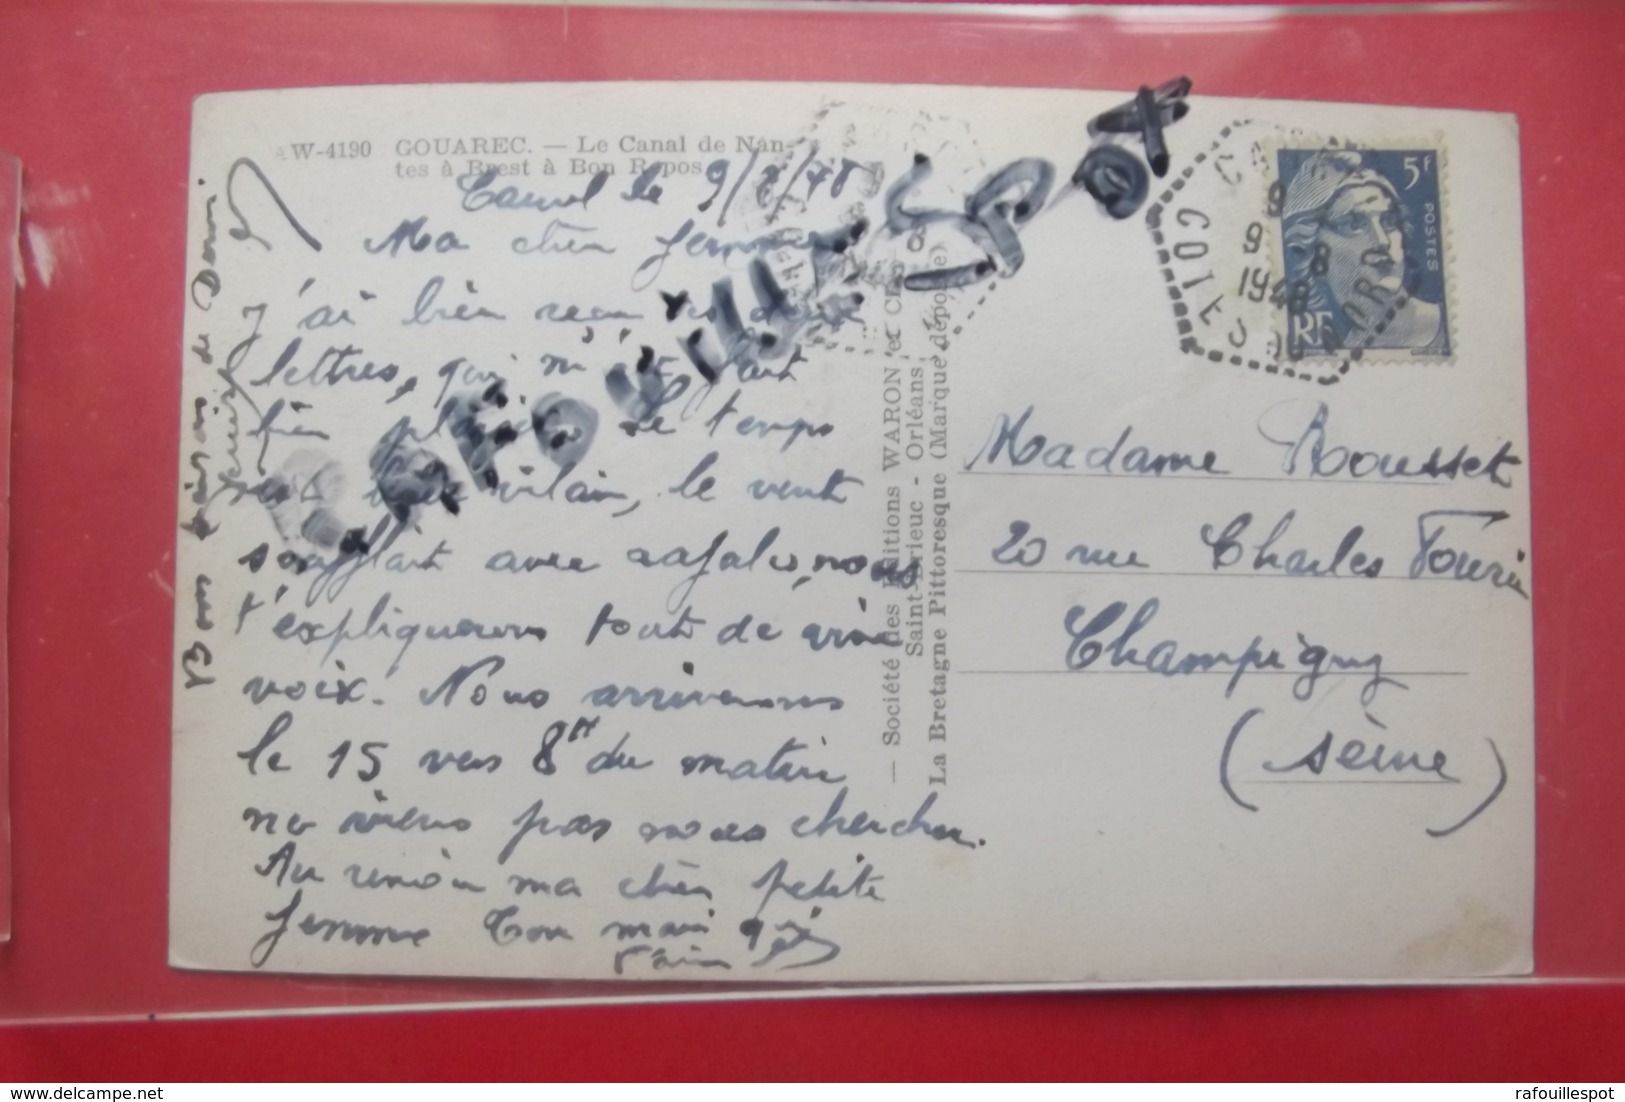 AW-4190 GOUAREC. — Le Canal de Nan-
tes à Brest à Bon Repos
le 9/8/48
Ma chère femme
j'ai bien reçu tes deux
lettres, qui m'ont fait
bien plaisir le temps
est bien vilain, le vent
soufflait avec rafale, nous
t'expliquerons tout de vive
voix. Nous arriverons
le 15 vers 8H du matin
ne viens pas nous chercher.
Au revoir ma chère petite
femme Ton mari qui
t'aime
Bons baisers de
— Société des Editions WARON et
Saint-Brieuc - Orléans
La Bretagne Pittoresque (Marque déposée)
rafouillespot
5f
POSTES
RF
COTES DU NORD
9 - 8
1948
Madame Rousset
20 rue Charles Fourier
Champigny
(Seine)
rafouillespot